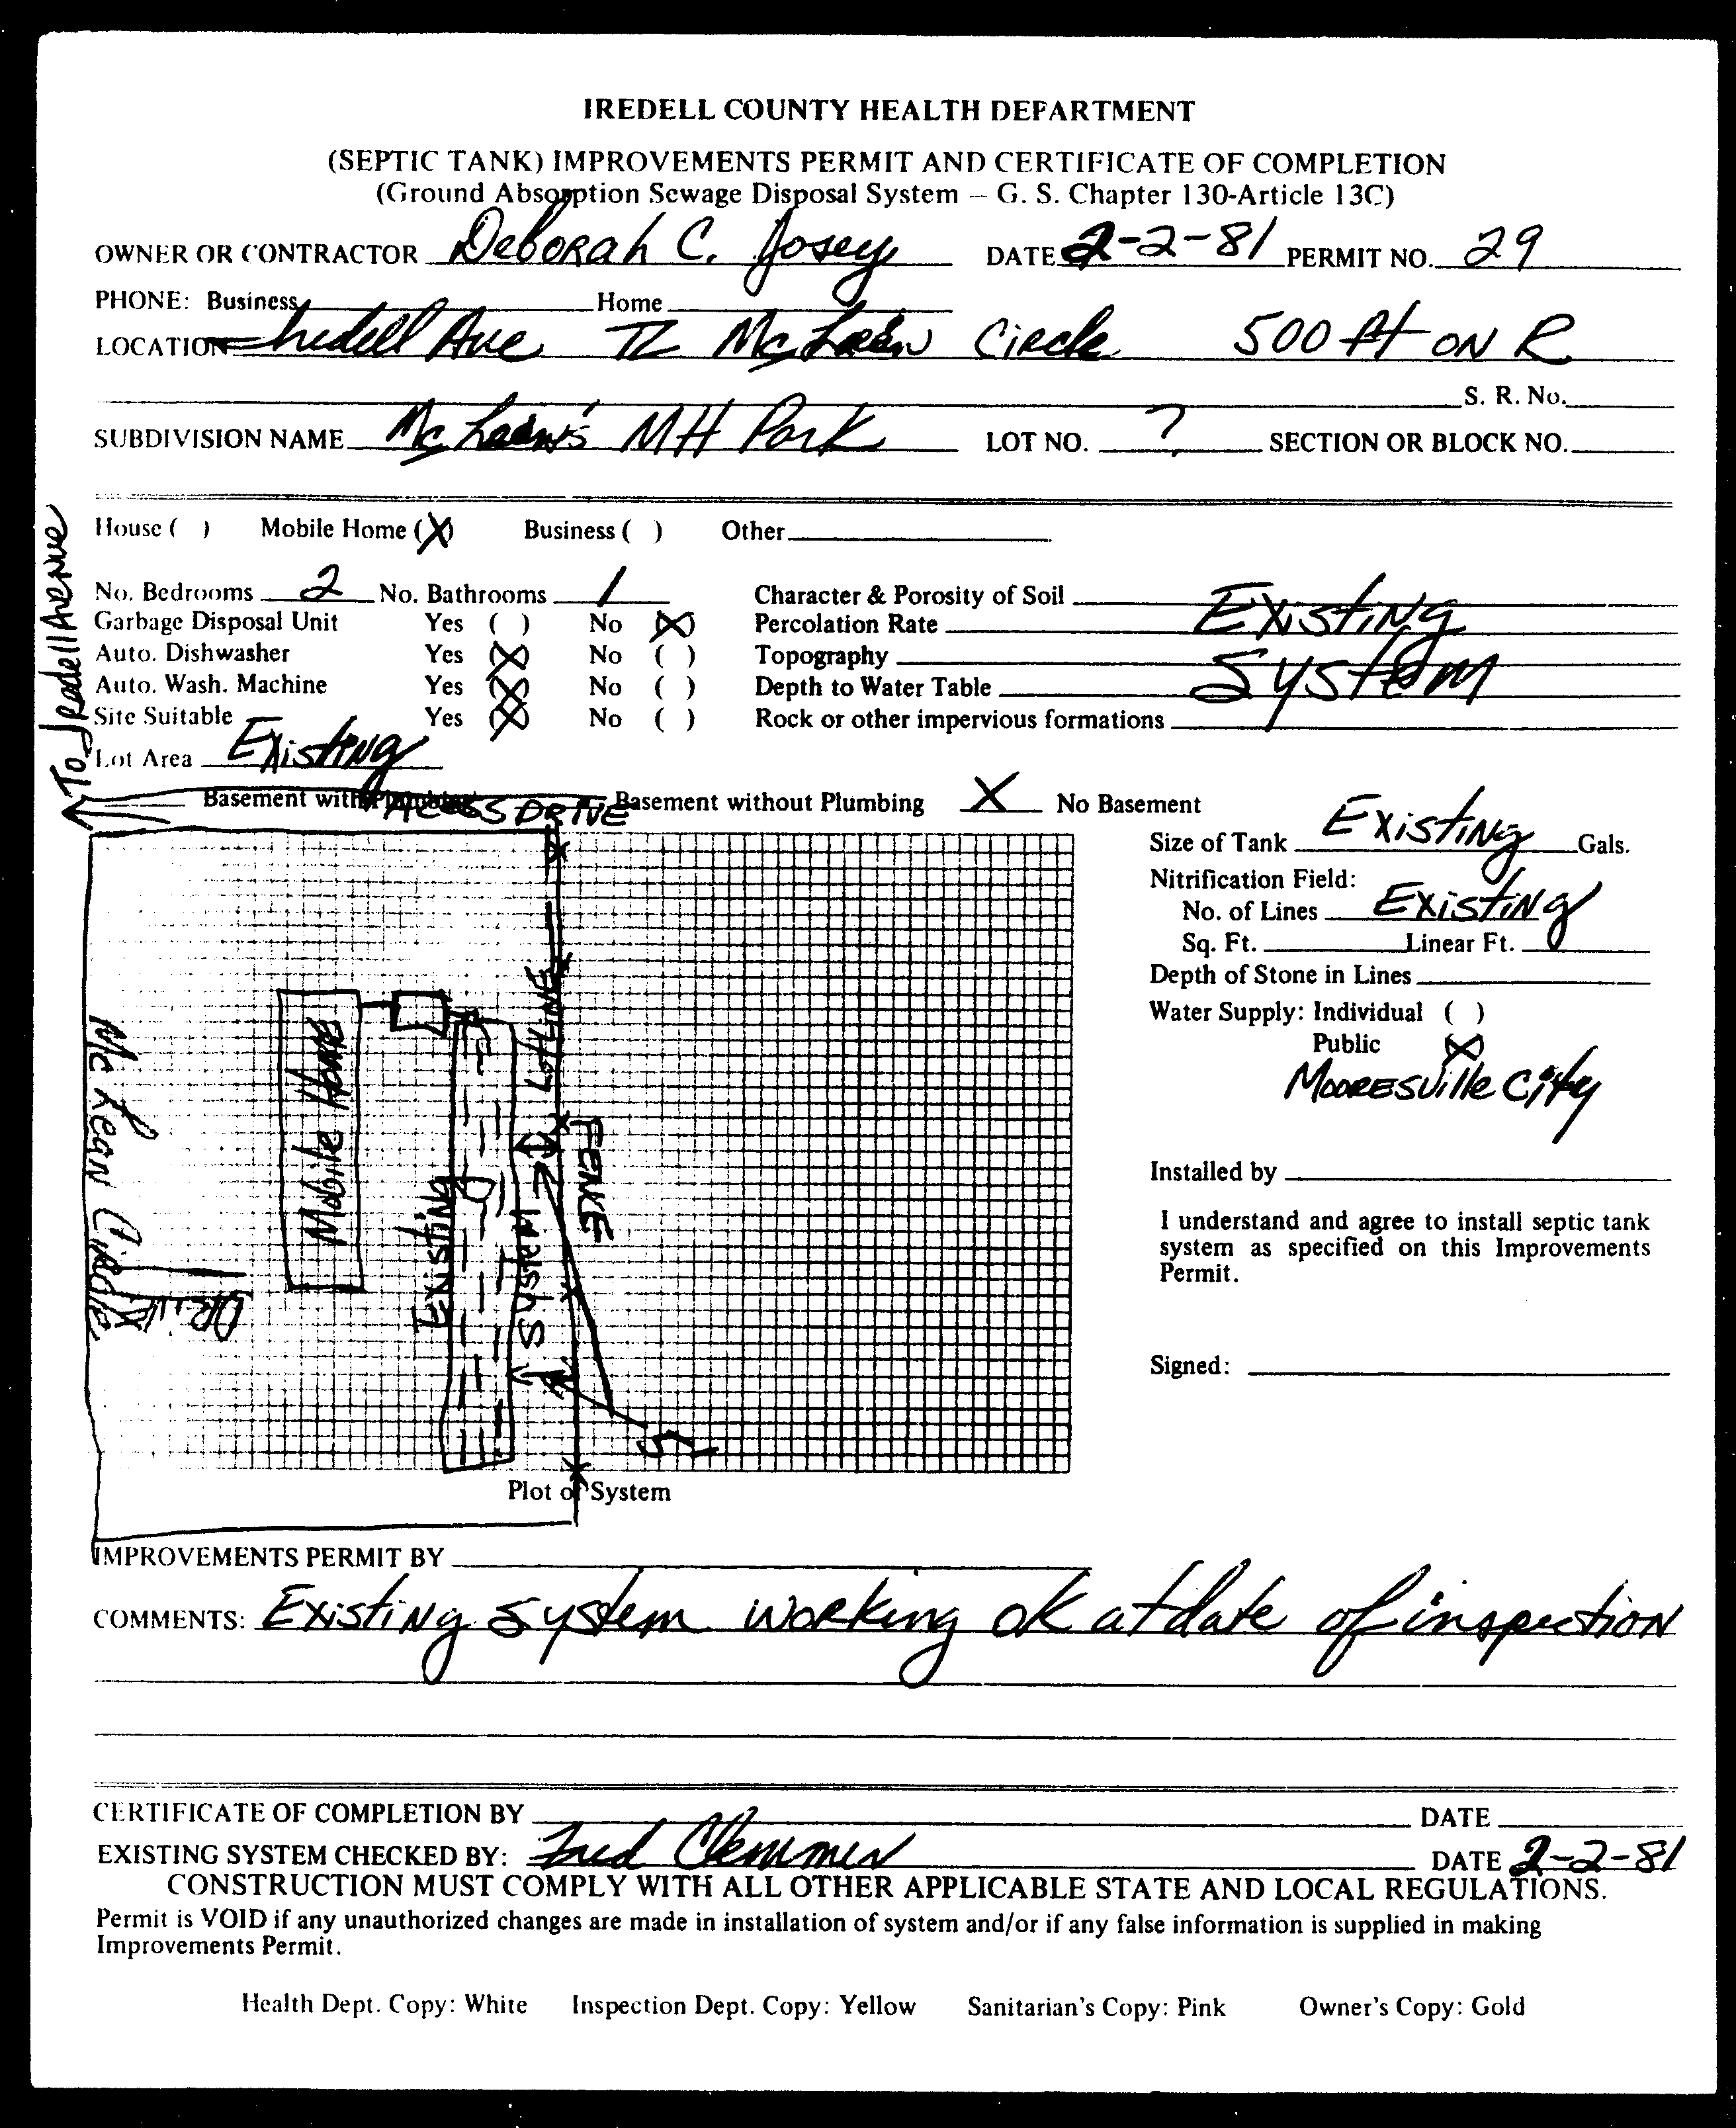 IREDELL COUNTY HEALTH DEPARTMENT
(SEPTIC TANK) IMPROVEMENTS PERMIT AND CERTIFICATE OF COMPLETION
(Ground Absorption Sewage Disposal System — G. S. Chapter 130-Article 13C)
OWNER OR CONTRACTOR Deborah C. Josey DATE 2-2-81 PERMIT NO. 29
PHONE: Business Home
LOCATION Iredell Ave TL McLean Circle 500 ft ON R
S. R. No.
SUBDIVISION NAME McLean's MH Park LOT NO. ? SECTION OR BLOCK NO.
House ( ) Mobile Home (X) Business ( ) Other
No. Bedrooms 2 No. Bathrooms 1 Character & Porosity of Soil Existing
Garbage Disposal Unit Yes ( ) No (X) Percolation Rate
Auto. Dishwasher Yes (X) No ( ) Topography System
Auto. Wash. Machine Yes (X) No ( ) Depth to Water Table
Site Suitable Yes (X) No ( ) Rock or other impervious formations
Lot Area Existing
To Iredell Avenue
Basement with Plumbing Basement without Plumbing X No Basement
ACCESS DRIVE
Size of Tank Existing Gals.
Nitrification Field:
No. of Lines Existing
Sq. Ft. Linear Ft.
Depth of Stone in Lines
Water Supply: Individual ( )
Public (X)
Mooresville City
McLean Circle
DRIVE
Mobile Home
Existing
Lot Line
FENCE
5'
Installed by
I understand and agree to install septic tank
system as specified on this Improvements
Permit.
Signed:
Plot of System
IMPROVEMENTS PERMIT BY
COMMENTS: Existing system working ok at date of inspection
CERTIFICATE OF COMPLETION BY DATE
EXISTING SYSTEM CHECKED BY: Fred Clemmer DATE 2-2-81
CONSTRUCTION MUST COMPLY WITH ALL OTHER APPLICABLE STATE AND LOCAL REGULATIONS.
Permit is VOID if any unauthorized changes are made in installation of system and/or if any false information is supplied in making
Improvements Permit.
Health Dept. Copy: White Inspection Dept. Copy: Yellow Sanitarian's Copy: Pink Owner's Copy: Gold